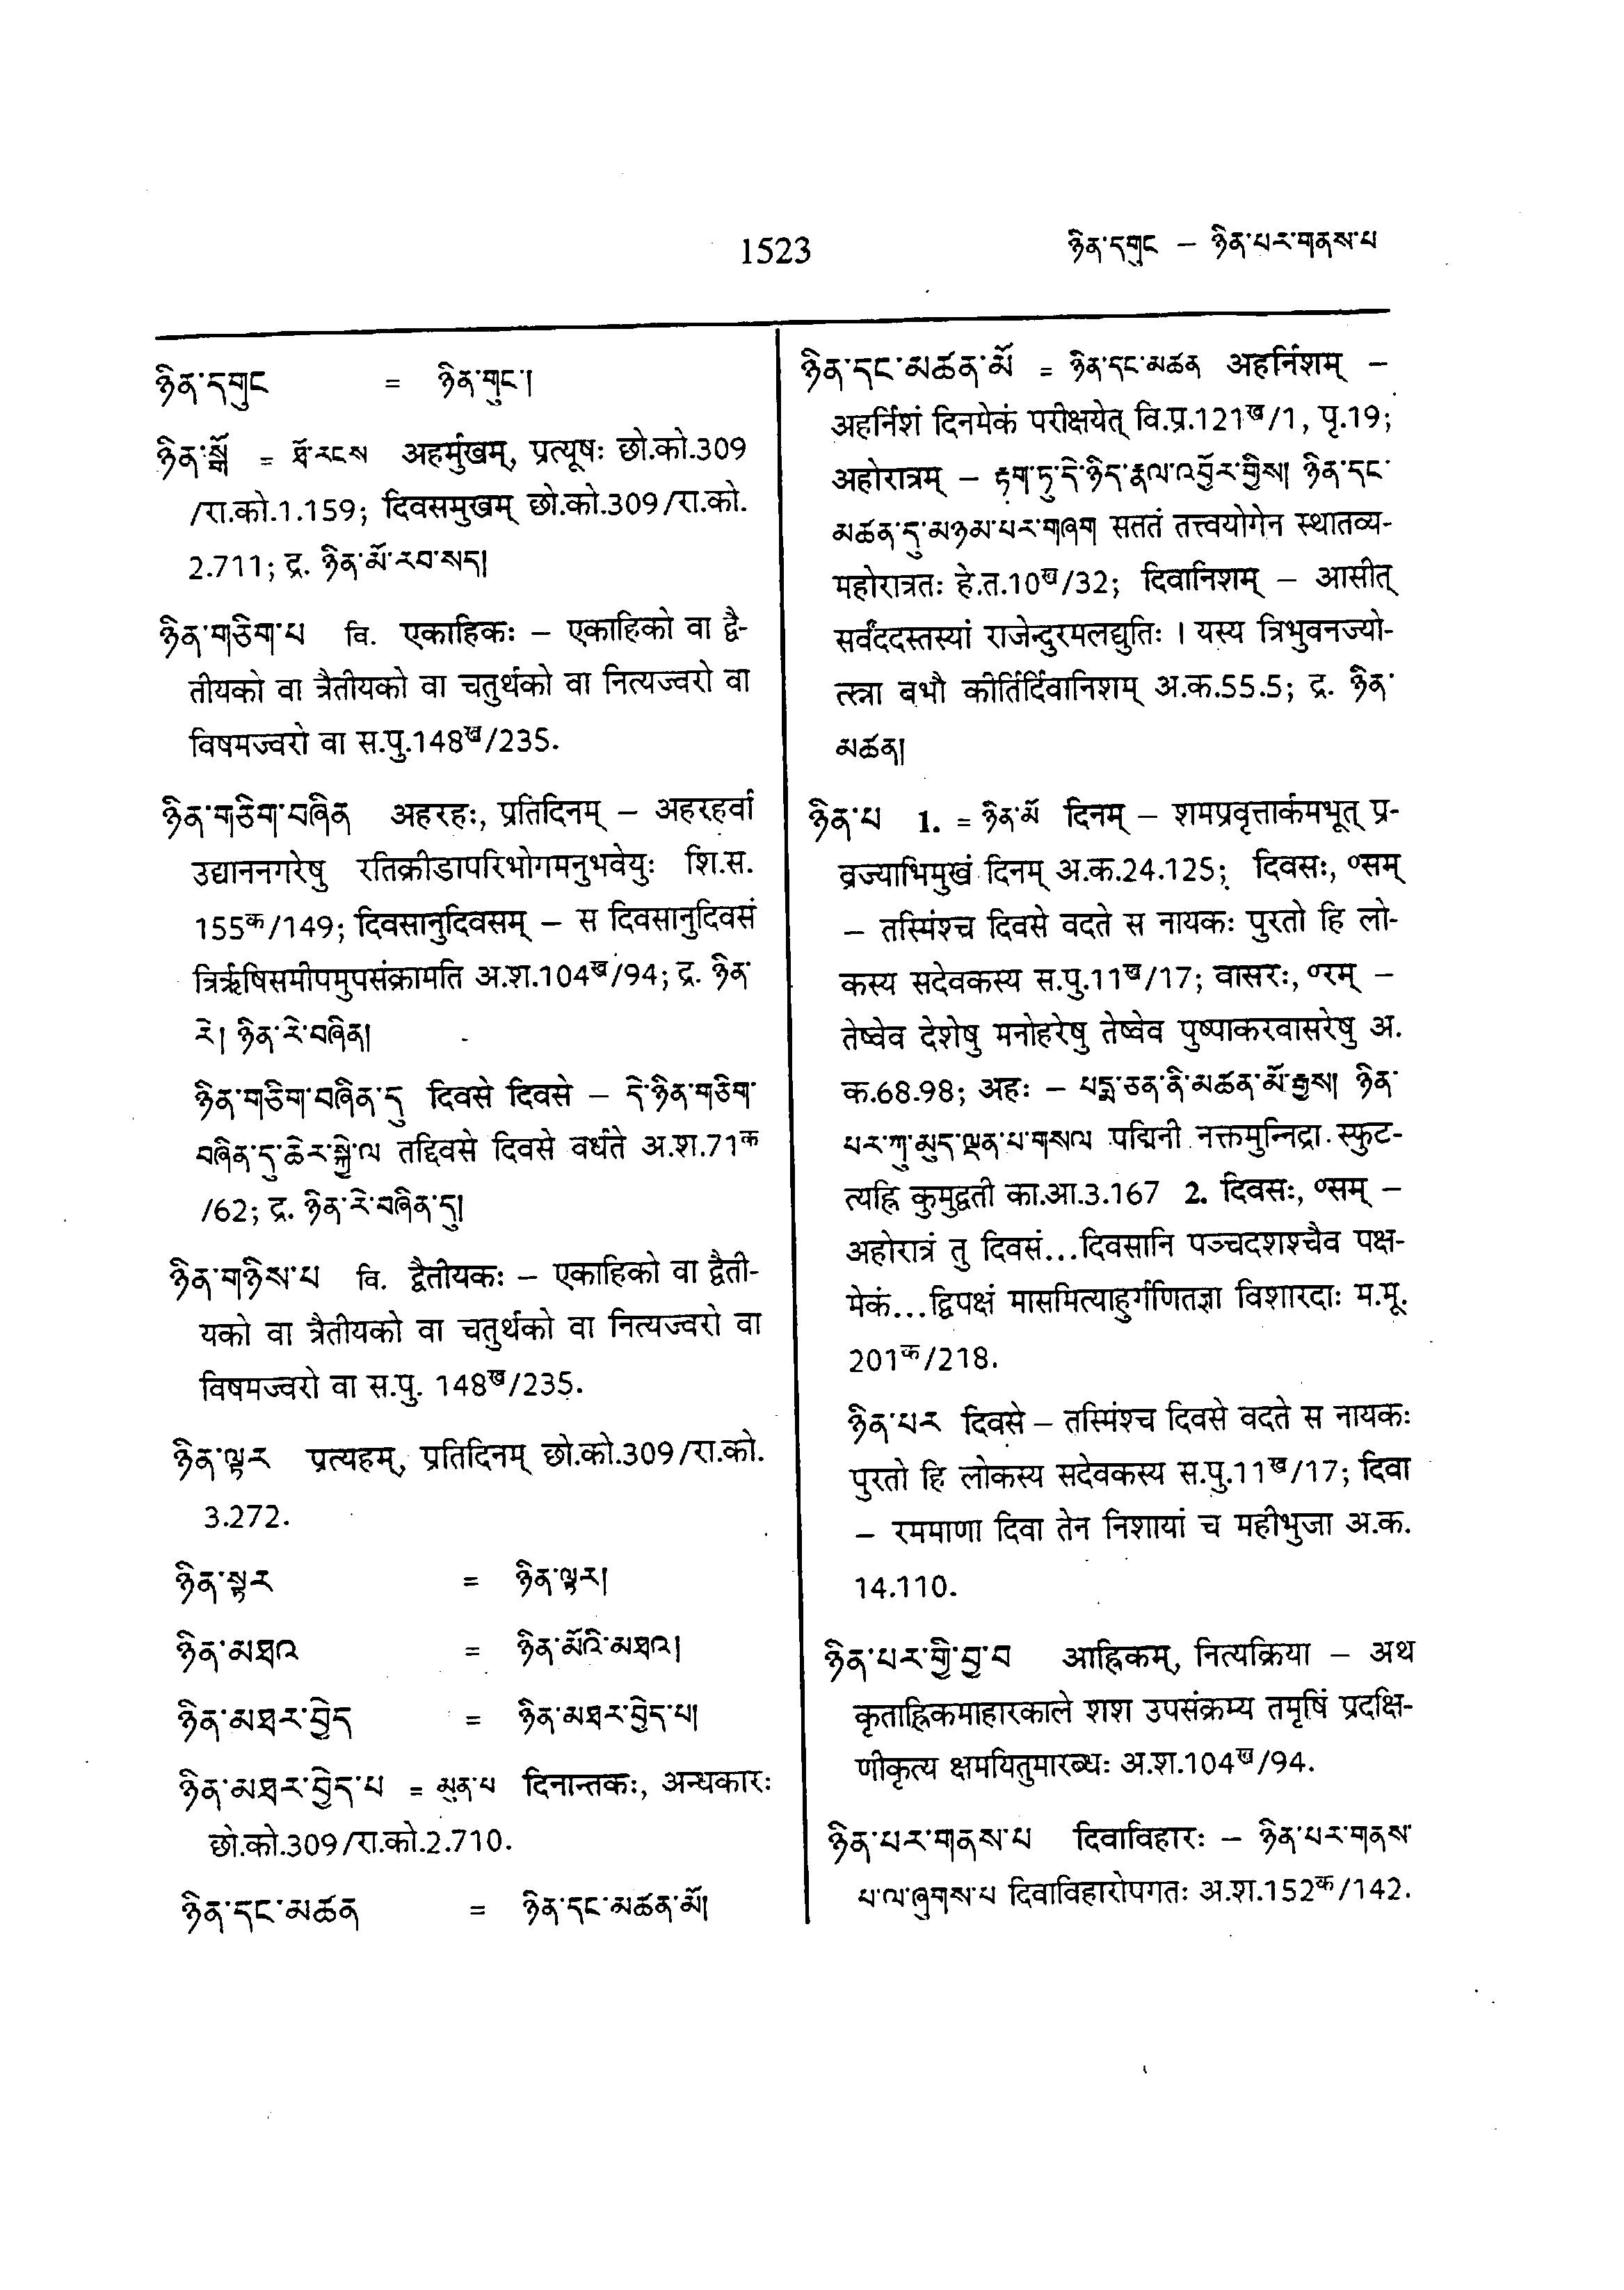 1523
ཉིན་དགུང – ཉིན་པར་གནས་པ
ཉིན་དགུང = ཉིན་གུང་།
ཉིན་སྒོ = ཐོ་རངས अहर्मुखम्, प्रत्यूषः छो.को.309
/रा.को.1.159; दिवसमुखम् छो.को.309/रा.को.
2.711; द्र. ཉིན་མོ་རབ་སད།
ཉིན་གཅིག་པ वि. एकाहिकः – एकाहिको वा द्वै-
तीयको वा त्रैतीयको वा चतुर्थको वा नित्यज्वरो वा
विषमज्वरो वा स.पु.148ख/235.
ཉིན་གཅིག་བཞིན अहरहः, प्रतिदिनम् – अहरहर्वा
उद्याननगरेषु रतिक्रीडापरिभोगमनुभवेयुः शि.स.
155क/149; दिवसानुदिवसम् – स दिवसानुदिवसं
त्रिर्ऋषिसमीपमुपसंक्रामति अ.श.104ख/94; द्र. ཉིན་
རེ། ཉིན་རེ་བཞིན།
ཉིན་གཅིག་བཞིན་དུ दिवसे दिवसे – དེ་ཉིན་གཅིག་
བཞིན་དུ་ཆེར་སྐྱེ་ལ तद्दिवसे दिवसे वर्धते अ.श.71क
/62; द्र. ཉིན་རེ་བཞིན་དུ།
ཉིན་གཉིས་པ वि. द्वैतीयकः – एकाहिको वा द्वैती-
यको वा त्रैतीयको वा चतुर्थको वा नित्यज्वरो वा
विषमज्वरो वा स.पु. 148ख/235.
ཉིན་ལྟར प्रत्यहम्, प्रतिदिनम् छो.को.309/रा.को.
3.272.
ཉིན་སྟར = ཉིན་ལྟར།
ཉིན་མཐའ = ཉིན་མོའི་མཐའ།
ཉིན་མཐར་བྱེད = ཉིན་མཐར་བྱེད་པ།
ཉིན་མཐར་བྱེད་པ = མུན་པ दिनान्तकः, अन्धकारः
छो.को.309/रा.को.2.710.
ཉིན་དང་མཚན = ཉིན་དང་མཚན་མོ།
ཉིན་དང་མཚན་མོ = ཉིན་དང་མཚན अहर्निशम् –
अहर्निशं दिनमेकं परीक्षयेत् वि.प्र.121ख/1, पृ.19;
अहोरात्रम् – རྟག་ཏུ་དེ་ཉིད་རྣལ་འབྱོར་གྱིས། ཉིན་དང་
མཚན་དུ་མཉམ་པར་གཞག सततं तत्त्वयोगेन स्थातव्य-
महोरात्रतः हे.त.10ख/32; दिवानिशम् – आसीत्
सर्वंददस्तस्यां राजेन्दुरमलद्युतिः । यस्य त्रिभुवनज्यो-
त्स्ना बभौ कीर्तिर्दिवानिशम् अ.क.55.5; द्र. ཉིན་
མཚན།
ཉིན་པ 1. = ཉིན་མོ दिनम् – शमप्रवृत्तार्कमभूत् प्र-
व्रज्याभिमुखं दिनम् अ.क.24.125; दिवसः, ०सम्
– तस्मिंश्च दिवसे वदते स नायकः पुरतो हि लो-
कस्य सदेवकस्य स.पु.11ख/17; वासरः, ०रम् –
तेष्वेव देशेषु मनोहरेषु तेष्वेव पुष्पाकरवासरेषु अ.
क.68.98; अहः – པདྨ་ཅན་ནི་མཚན་མོ་རྒྱས། ཉིན་
པར་ཀུ་མུད་ལྡན་པ་གསལ पद्मिनी नक्तमुन्निद्रा स्फुट-
त्यह्नि कुमुद्वती का.आ.3.167 2. दिवसः, ०सम् –
अहोरात्रं तु दिवसं...दिवसानि पञ्चदशश्चैव पक्ष-
मेकं...द्विपक्षं मासमित्याहुर्गणितज्ञा विशारदाः म.मू.
201क/218.
ཉིན་པར दिवसे – तस्मिंश्च दिवसे वदते स नायकः
पुरतो हि लोकस्य सदेवकस्य स.पु.11ख/17; दिवा
– रममाणा दिवा तेन निशायां च महीभुजा अ.क.
14.110.
ཉིན་པར་གྱི་བྱ་བ आह्निकम्, नित्यक्रिया – अथ
कृताह्निकमाहारकाले शश उपसंक्रम्य तमृषिं प्रदक्षि-
णीकृत्य क्षमयितुमारब्धः अ.श.104ख/94.
ཉིན་པར་གནས་པ दिवाविहारः – ཉིན་པར་གནས་
པ་ལ་ཞུགས་པ दिवाविहारोपगतः अ.श.152क/142.